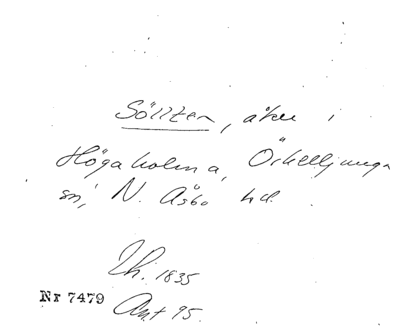 Söllten, åker i
Högaholma, Örkelljunga
sn, N. Åsbo hd.
Lh. 1835
Nr 7479
Ant 95.